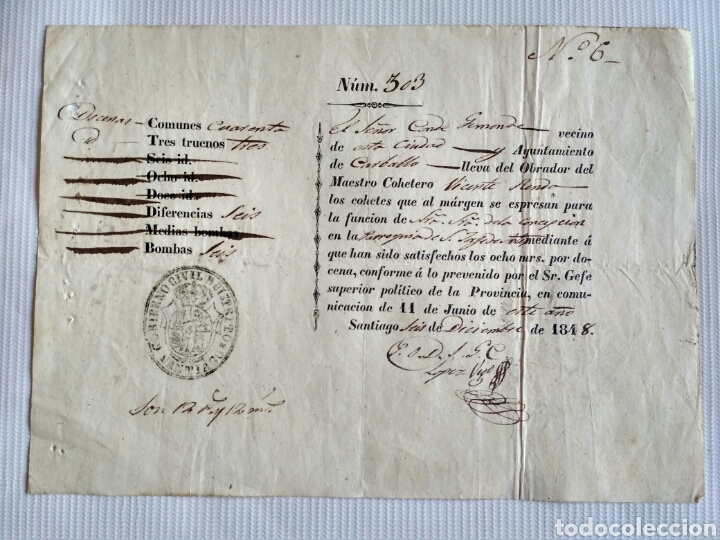 N.º 6
Núm. 303
Decenas Comunes Cuarenta
Id Tres truenos tres
Seis id.
Ocho id.
Doce id.
Diferencias Seis
Medias bombas
Bombas Seis
GOBIERNO CIVIL
Son 12 rs. y 12 ms.
El Señor Conde Gimonde vecino
de esta Ciudad y Ayuntamiento
de Carballo lleva del Obrador del
Maestro Cohetero Vicente
los cohetes que al márgen se espresan para
la funcion de Ntra. Sra. de la Concepcion
en la Parroquia de S. mediante á
que han sido satisfechos los ocho mrs. por
docena, conforme á lo prevenido por el Sr. Gefe
superior político de la Provincia, en comu-
nicacion de 11 de Junio de este año
Santiago Seis de Diciembre de 1848.
Lopez
todocoleccion